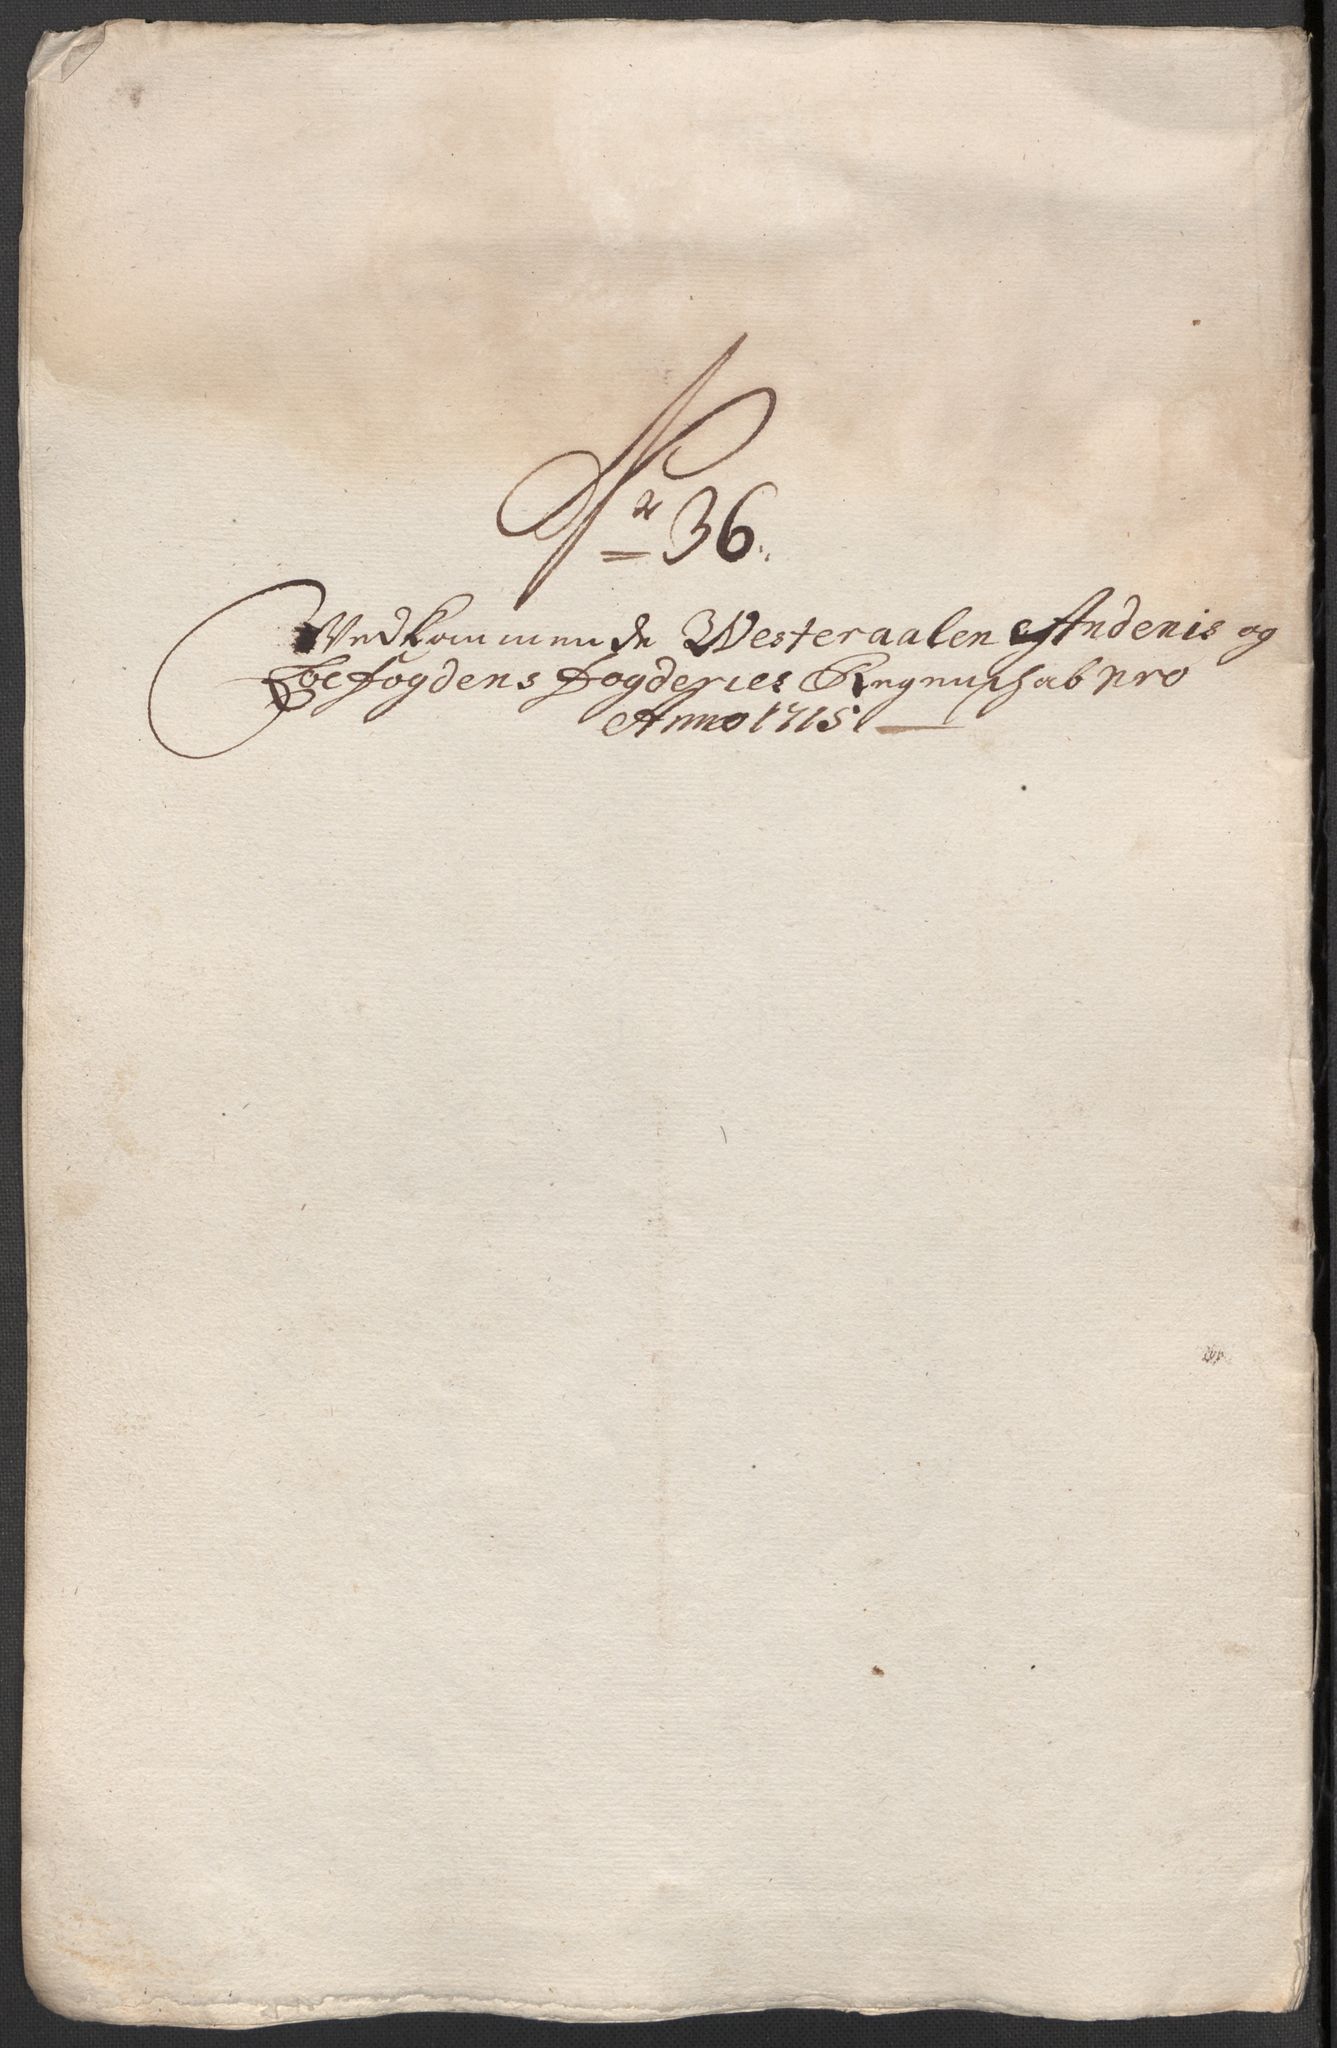 No 36.
Vedkommende Westeraalen Andenis og
Lofogdens Fogderies Regnenschab pro
Anno 1715